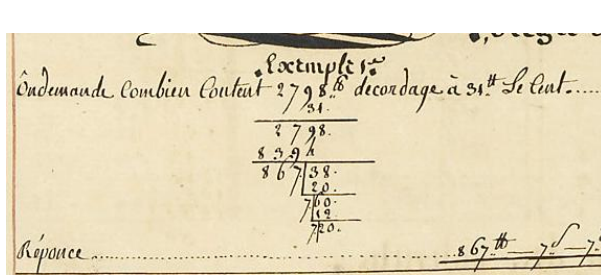 Exemple 1.re
On demande Combien Coutent 2798.lb de cordage à 31.tt Le Cent.....
31.
2798.
8394
867|38.
20.
7|60.
12.
7|20.
Réponce ........ 867.tt — 7.s — 7.